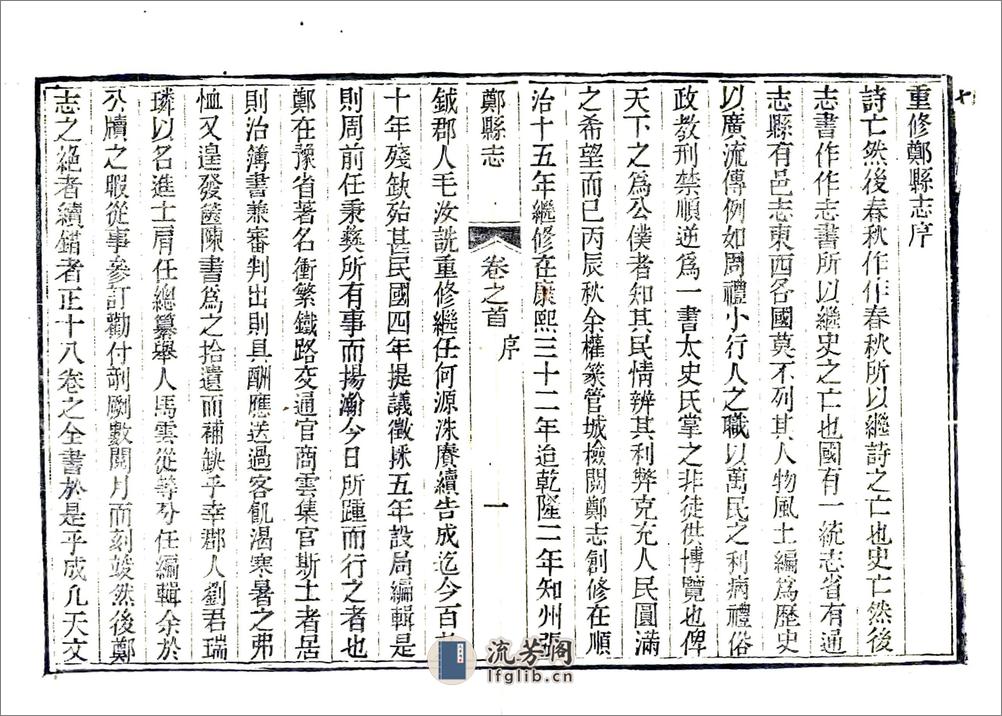 重修鄭縣志序
詩亡然後春秋作作春秋所以繼詩之亡也史亡然後
志書作作志書所以繼史之亡也國有一統志省有通
志縣有邑志東西各國莫不列其人物風土編爲歷史
以廣流傳例如周禮小行人之職以萬民之利病禮俗
政教刑禁順逆爲一書太史氏掌之非徒供博覽也俾
天下之爲公僕者知其民情辨其利弊克充人民圓滿
之希望而已丙辰秋余權篆管城檢閱鄭志創修在順
治十五年繼修在康熙三十二年迨乾隆二年知州張
鄭縣志
卷之首
序
一
鉞郡人毛汝詵重修繼任何源洙賡續告成迄今百
十年殘缺殆甚民國四年提議徵採五年設局編輯是
則周前任秉彝所有事而揚瀚今日所踵而行之者也
鄭在豫省著名衝繁鐵路交通官商雲集官斯土者居
則治簿書兼審判出則具酬應送過客飢渴寒暑之弗
恤又遑發篋陳書爲之拾遺而補缺乎幸郡人劉君瑞
璘以名進士肩任總纂舉人馬雲從等分任編輯余於
公牘之暇從事參訂勸付剞劂數閱月而刻竣然後鄭
志之絕者續錯者正十八卷之全書於是乎成凡天文
流芳阁
lfglib.cn